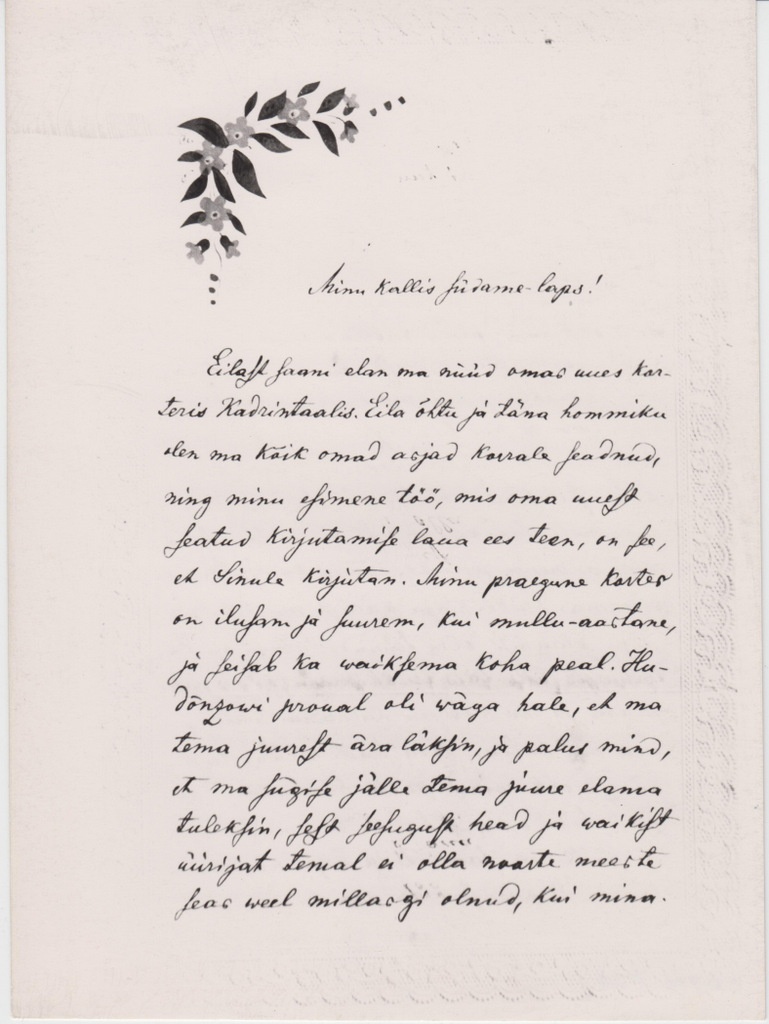 Minu kallis südame-laps!
Eilast saani elan ma nüüd omas uues kor-
teris Kadrintaalis. Eila õhtu ja täna hommiku
olen ma kõik omad asjad korrale seadnud,
ning minu esimene töö, mis oma uuest
seatud kirjutamise laua ees teen, on see,
et Sinule kirjutan. Minu praegune korter
on ilusam ja suurem, kui mullu-aastane,
ja seisab ka waiksema koha peal. Hu-
dõnzowi proual oli wäga hale, et ma
tema juurest ära läksin, ja palus mind,
et ma sügise jälle tema juure elama
tuleksin, sest seesugust head ja waikist
üürijat temal ei olla noorte meeste
seas weel millasgi olnud, kui mina.